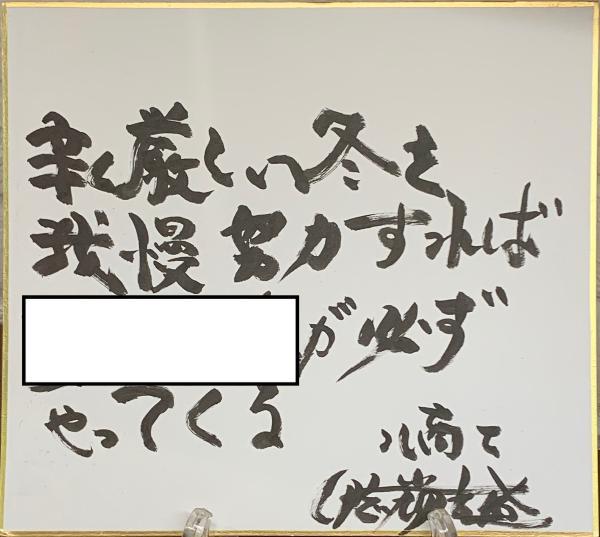 寒く厳しい冬を
我慢努力すれば
が必ず
やってくる